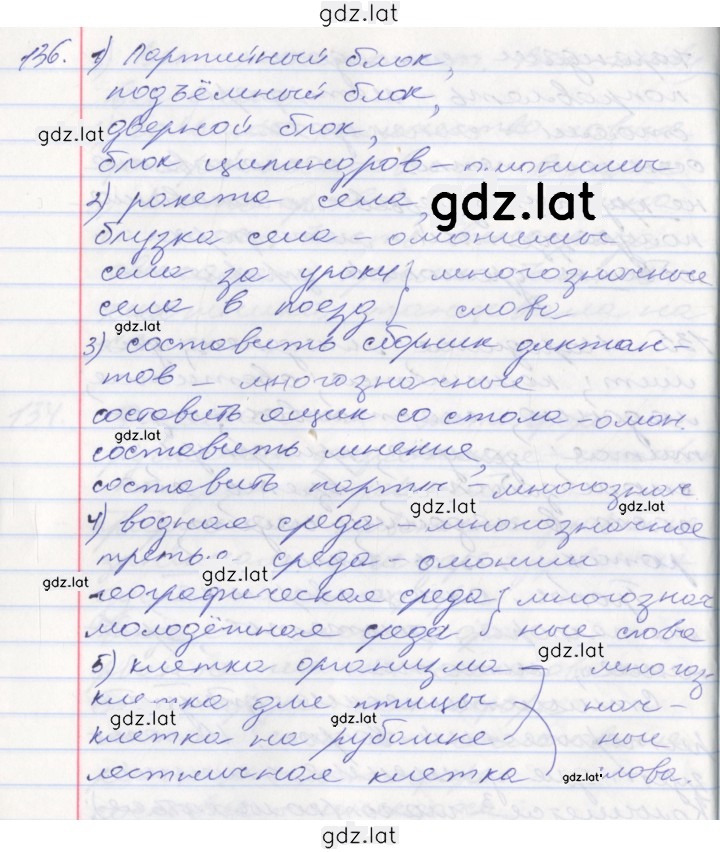 gdz.lat
136. 1) Партийный блок,
подъёмный блок,
gdz.lat
дверной блок,
блок цилиндров – омонимы
2) ракета села,
gdz.lat
блузка села – омонимы
села за уроки } многозначные
села в поезд } слова
gdz.lat
3) составить сборник диктан-
тов – многозначные
составить ящик со стола – омон.
gdz.lat
составить мнение,
составить парты – многознач
gdz.lat gdz.lat
4) водная среда – многозначное
третья среда – омоним
gdz.lat gdz.lat
географическая среда } многознач
молодёжная среда } ные слова
gdz.lat
5) клетка организма – многоз-
клетка для птицы нач-
gdz.lat gdz.lat
клетка на рубашке ные
лестничная клетка слова.
gdz.lat
gdz.lat